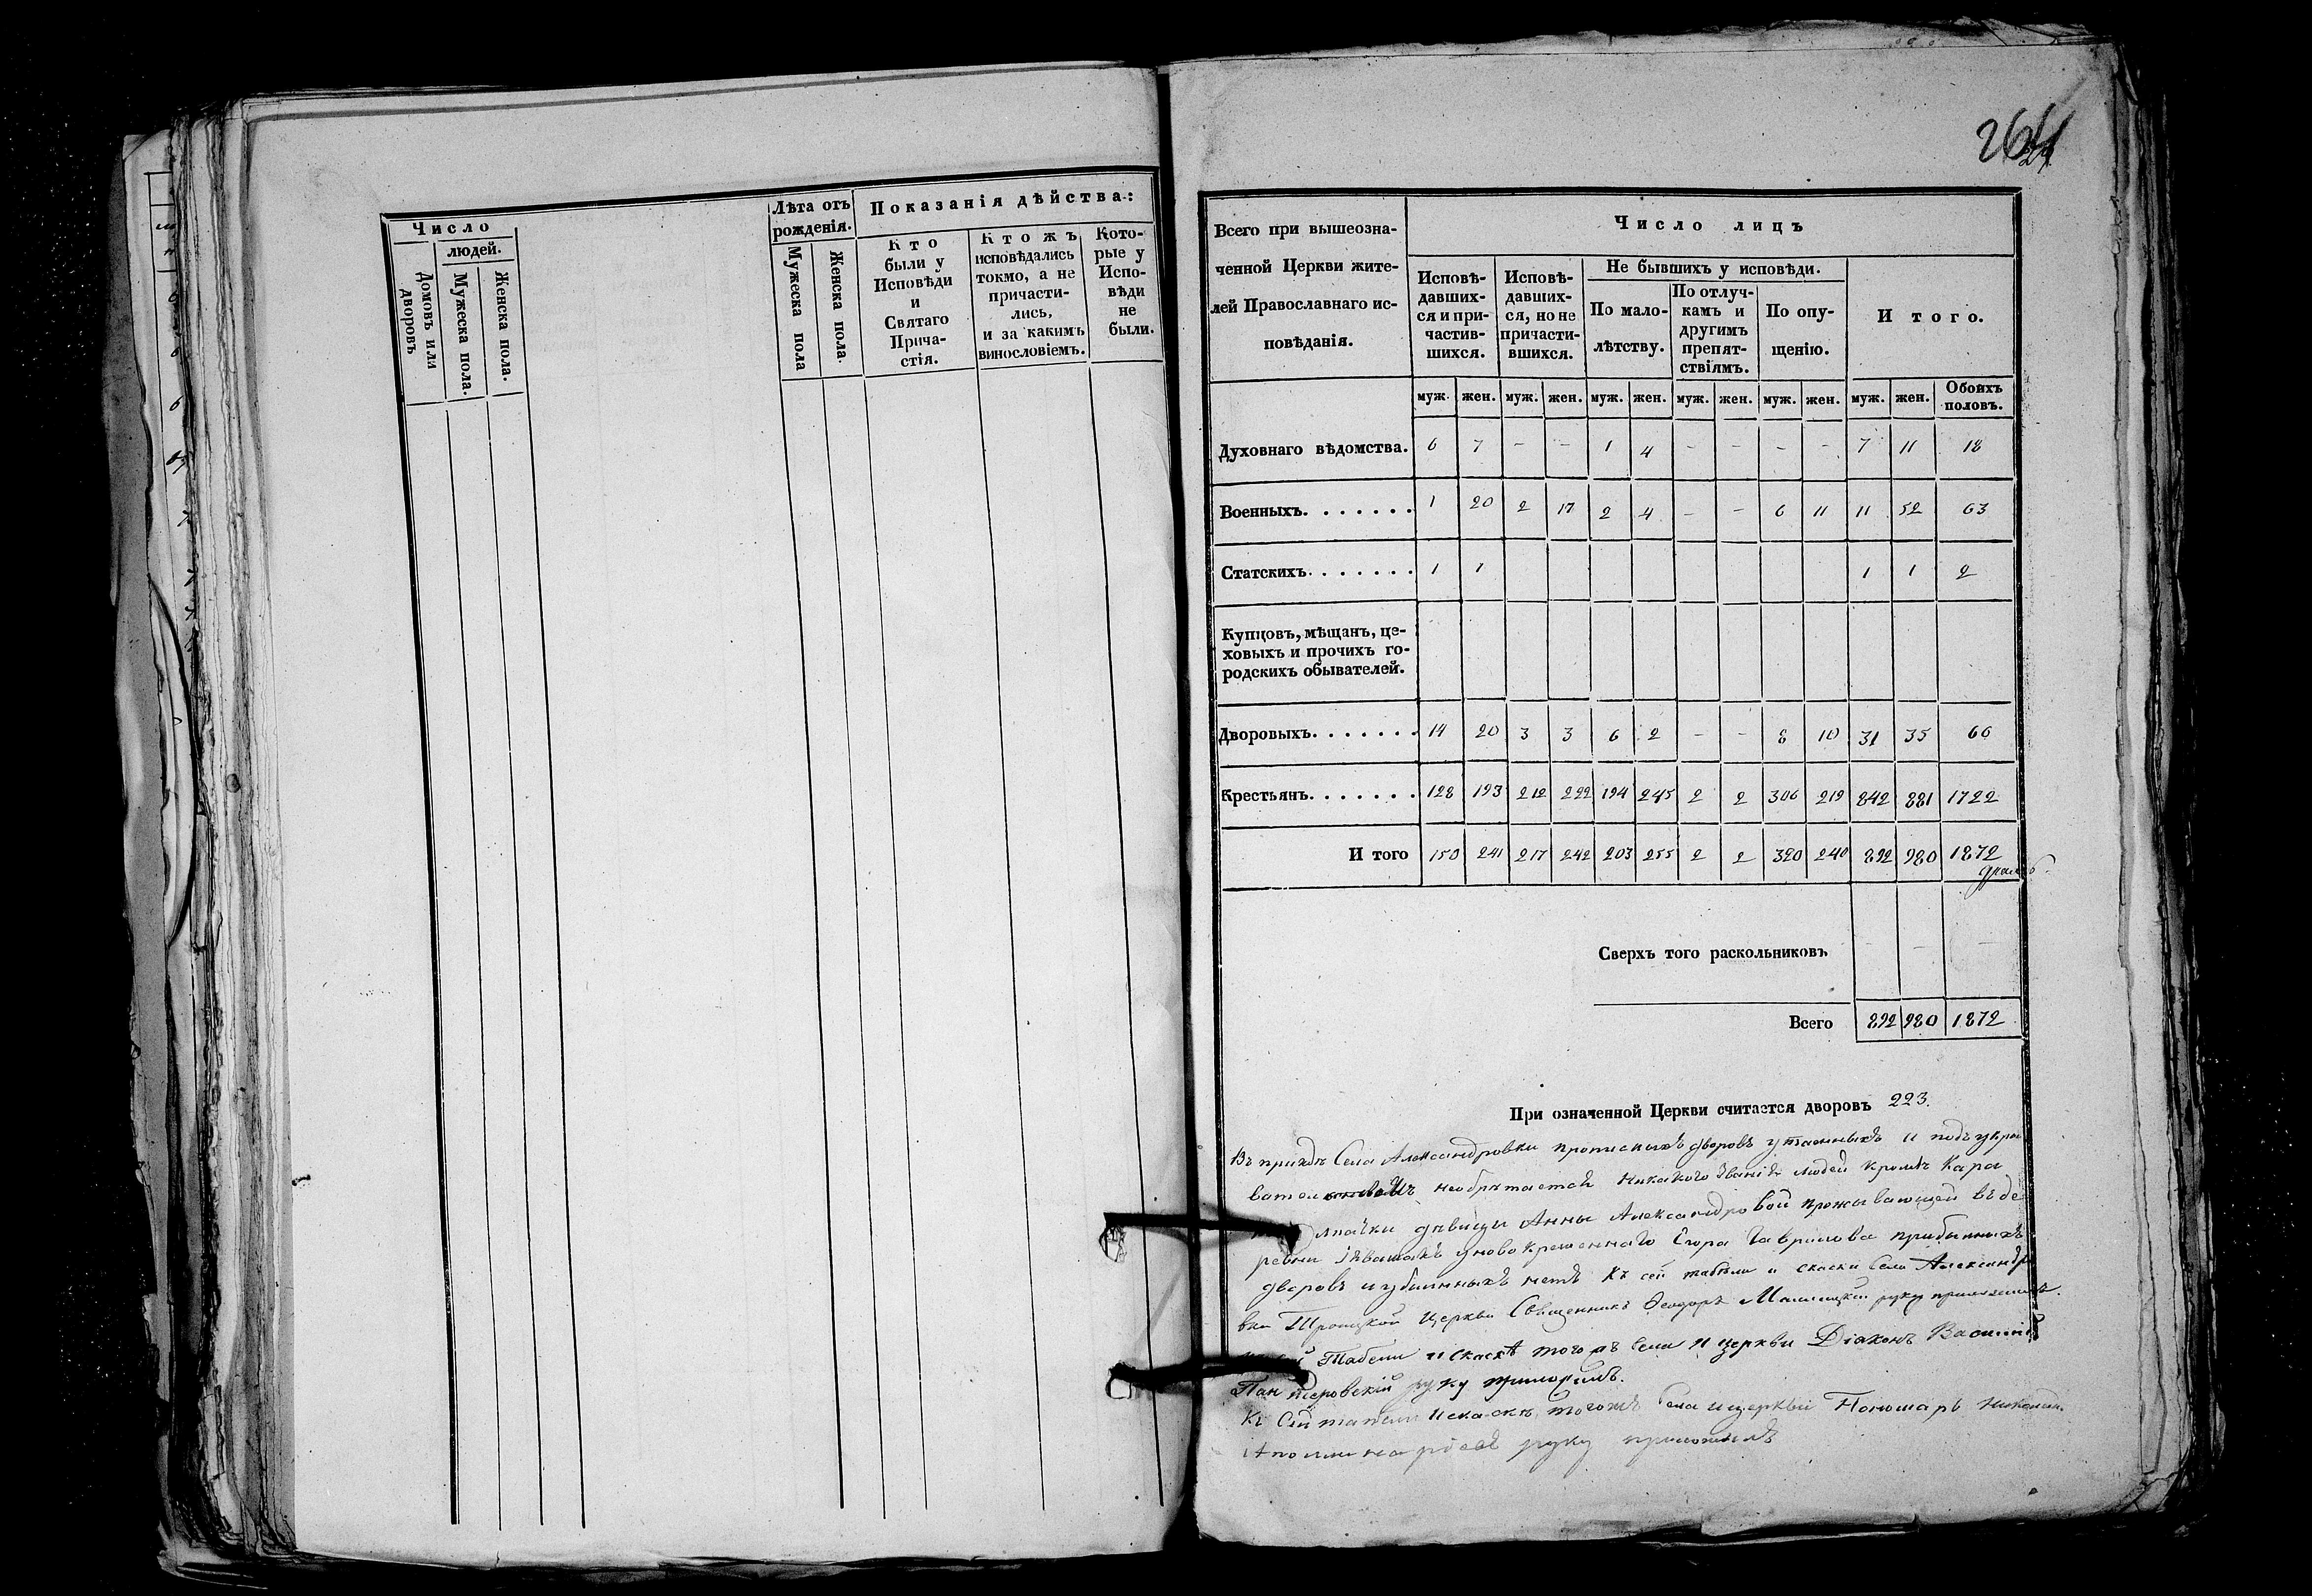 Число
людей.
Домовъ или дворовъ
Мужеска пола.
Женска пола.
Лѣта отъ рожденія.
Мужеска пола
Женска пола.
Показанія дѣйства:
Кто
были у
Исповѣди
и
Святаго
Прича-
стія.
Ктожъ
исповѣдались
токмо, а не
причасти-
лись,
и за какимъ
винословіемъ.
Кото-
рые у
Испо-
вѣди
не
были.
264
Всего при вышеозна-
ченной Церкви жите-
лей Православнаго ис-
повѣданія.
Число лицъ
Исповѣ-
давших-
ся и при-
частив-
шихся.
Исповѣ-
давших-
ся, но не
причасти-
вшихся.
Не бывшихъ у исповѣди.
По мало-
лѣтству.
По отлуч-
камъ и
другимъ
препят-
ствіямъ.
По опу-
щенію.
И того.
муж. жен. муж. жен. муж. жен. муж. жен. муж. жен. муж. жен. Обоихъ половъ.
Духовнаго вѣдомства. 6 7 – – 1 4 – – – – 7 11 18
Военныхъ. . . . . . . 1 20 2 17 2 4 – – 6 11 11 52 63
Статскихъ. . . . . . . 1 1 1 1 2
Купцовъ, мѣщанъ, це-
ховыхъ и прочихъ го-
родскихъ обывателей.
Дворовыхъ. . . . . . . 14 20 3 3 6 2 – – 8 10 31 35 66
Крестьянъ. . . . . . . 128 193 212 222 194 245 2 2 306 219 842 881 1722
И того 150 241 217 242 203 255 2 2 320 240 892 980 1872
Сверхъ того раскольниковъ – – –
Всего 892 980 1872
При означенной Церкви считается дворовъ 223.
Въ приходѣ Села Александровки прописныхъ дворовъ утаенныхъ и подъ укры
необрѣтается никакого званія людей кромѣ
дѣвицы Анны Александровой проживающей въ де
ревни новокрещеннаго Егора Гаврилова прибылыхъ
дворовъ и убылныхъ нетъ Къ сей табели и скаски Села Александро
вки Троицкой Церкви Священникъ Феодоръ руку приложилъ.
Табели и скаскѣ того жъ Села и церкви Діаконъ Василій
руку приложилъ.
Къ сей табели и скаскѣ тогожъ Села и церкви Пономарь
руку приложилъ